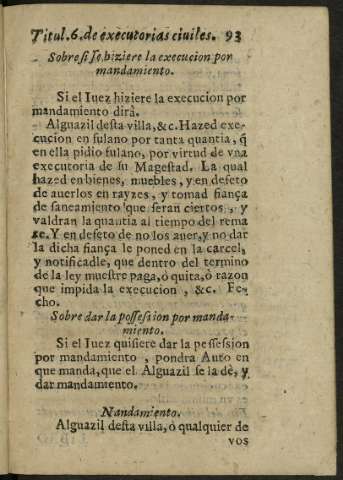 Titul.6.de executorias ciuiles. 93
Sobre si se hiziere la execucion por
mandamiento.
Si el Iuez hiziere la execucion por
mandamiento dirà.
Alguazil desta villa, &c. Hazed exe-
cucion en fulano por tanta quantia, q̃
en ella pidio fulano, por virtud de vna
executoria de su Magestad. La qual
hazed en bienes, muebles, y en defeto
de auerlos en rayzes, y tomad fiança
de saneamiento que seran ciertos, y
valdran la quantia al tiempo del rema
te. Y en defeto de no los auer, y no dar
la dicha fiança le poned en la carcel,
y notificadle, que dentro del termino
de la ley muestre paga, ò quita, ò razon
que impida la execucion, &c. Fe-
cho.
Sobre dar la possession por manda-
miento.
Si el Iuez quisiere dar la possession
por mandamiento, pondra Auto en
que manda, que el Alguazil se la dè, y
dar mandamiento.
Mandamiento.
Alguazil desta villa, ò qualquier de
vos